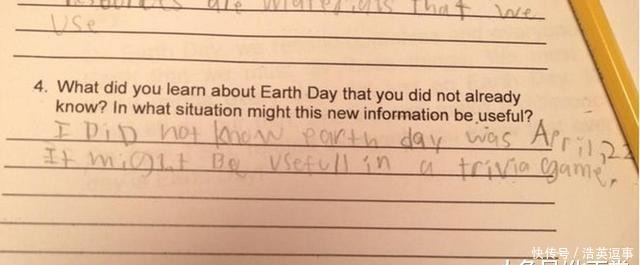 Resources are materials that we
use
4. What did you learn about Earth Day that you did not already
know? In what situation might this new information be useful?
I DiD not know earth day was April, 22
It might Be Usefull in a trivia game.
快传号／浩英逗事